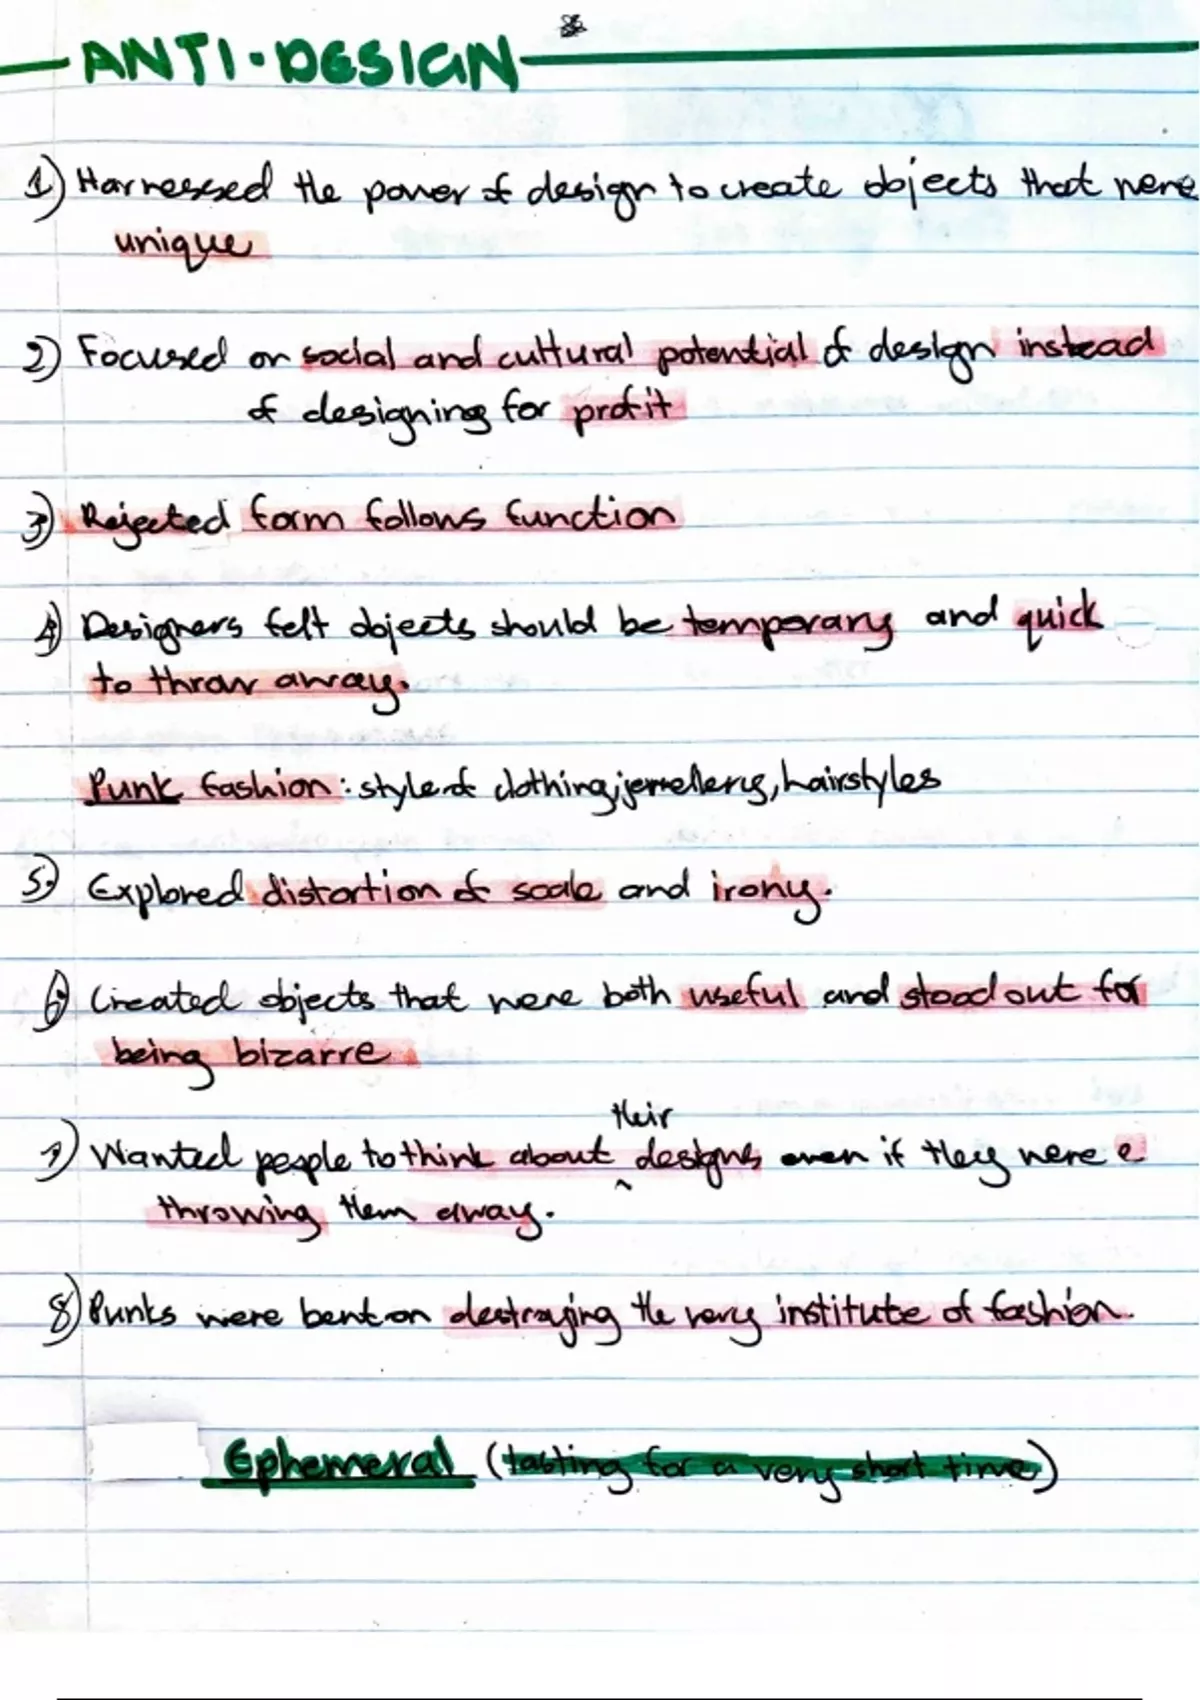 ANTI-DESIGN
1) Harnessed the power of design to create objects that were
unique
2) Focused on social and cultural potential of design instead
of designing for profit
3) Rejected form follows function
4) Designers felt objects should be temporary and quick
to throw away.
Punk fashion: style of clothing, jewellery, hairstyles
5.) Explored distortion of scale and irony.
6) Created objects that were both useful and stood out for
being bizarre
their
7) Wanted people to think about ^ designs even if they were e
throwing them away.
8) Punks were bent on destroying the very institute of fashion.
Ephemeral (lasting for a very short time)